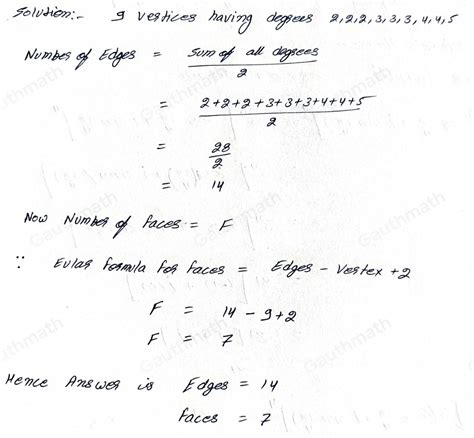 Solution:- 9 vertices having degrees 2,2,2,3,3,3,4,4,5
Number of Edges = Sum of all degrees
2
= 2+2+2+3+3+3+4+4+5
2
= 28
2
= 14
Now Number of faces = F
∵ Eular formula for faces = Edges - Vertex +2
F = 14 - 9+2
F = 7
Hence Answer is Edges = 14
faces = 7
Gauthmath
Gauthmath
Gauthmath
Gauthmath
Gauthmath